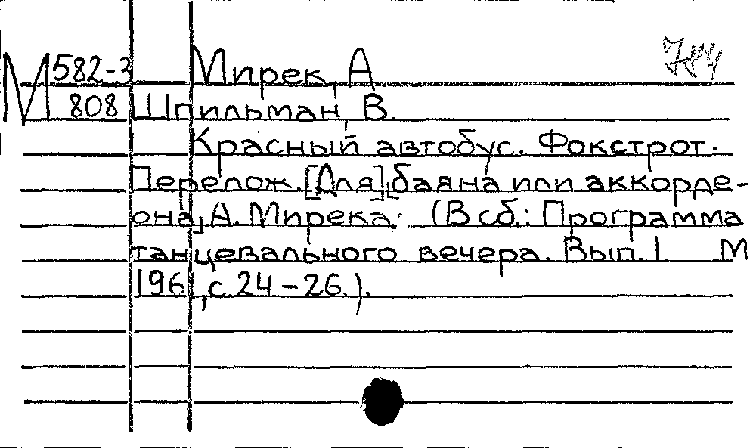 М 582-3 Мирек, А
808 Шпильман, В.
Красный автобус. Фокстрот.
Перелож. [Для] баяна или аккорде-
она, А. Мирека. (В сб.: Программа
танцевального вечера. Вып. 1 М
1961, с. 24-26.).